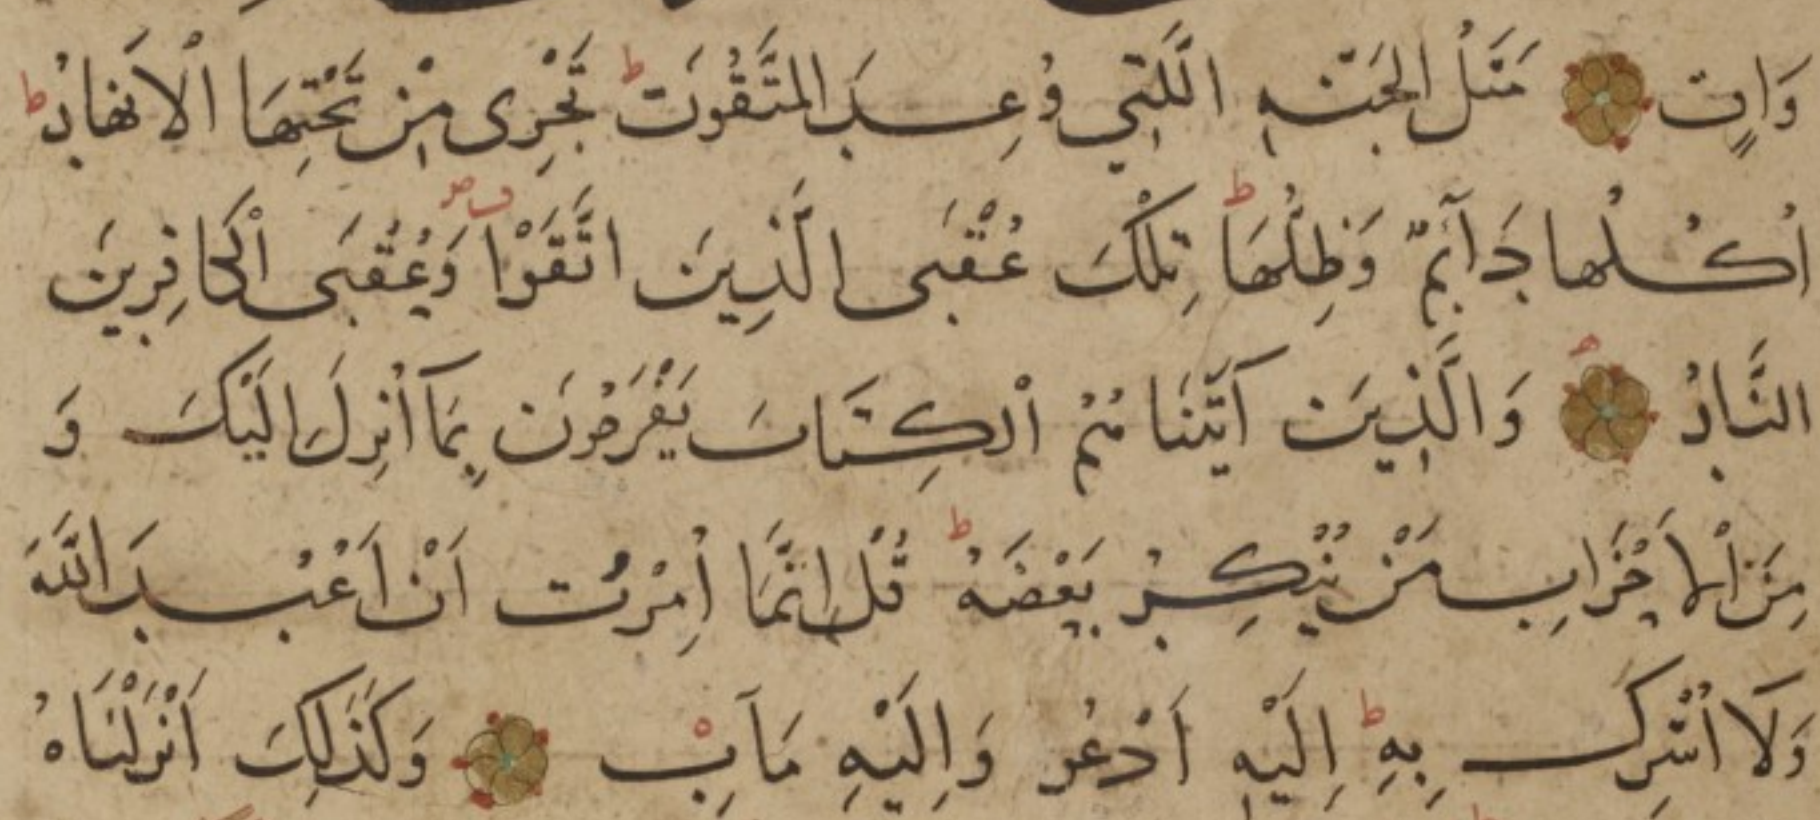 وَاقٍ مَثَلُ الْجَنَّةِ الَّتِي وُعِدَ الْمُتَّقُونَ ط تَجْرِي مِنْ تَحْتِهَا الْاَنْهَارُ ط
اُكُلُهَا دَآئِمٌ وَظِلُّهَا ط تِلْكَ عُقْبَى الَّذِينَ اتَّقَوْا وَعُقْبَى الْكَافِرِينَ
النَّارُ وَالَّذِينَ آتَيْنَاهُمُ الْكِتَابَ يَفْرَحُونَ بِمَآ اُنْزِلَ اِلَيْكَ وَ
مِنَ الْاَحْزَابِ مَنْ يُنْكِرُ بَعْضَهُ ط قُلْ اِنَّمَا اُمِرْتُ اَنْ اَعْبُدَ اللَّهَ
وَلَا اُشْرِكَ بِهِ ط اِلَيْهِ اَدْعُو وَاِلَيْهِ مَآبِ وَكَذَلِكَ اَنْزَلْنَاهُ